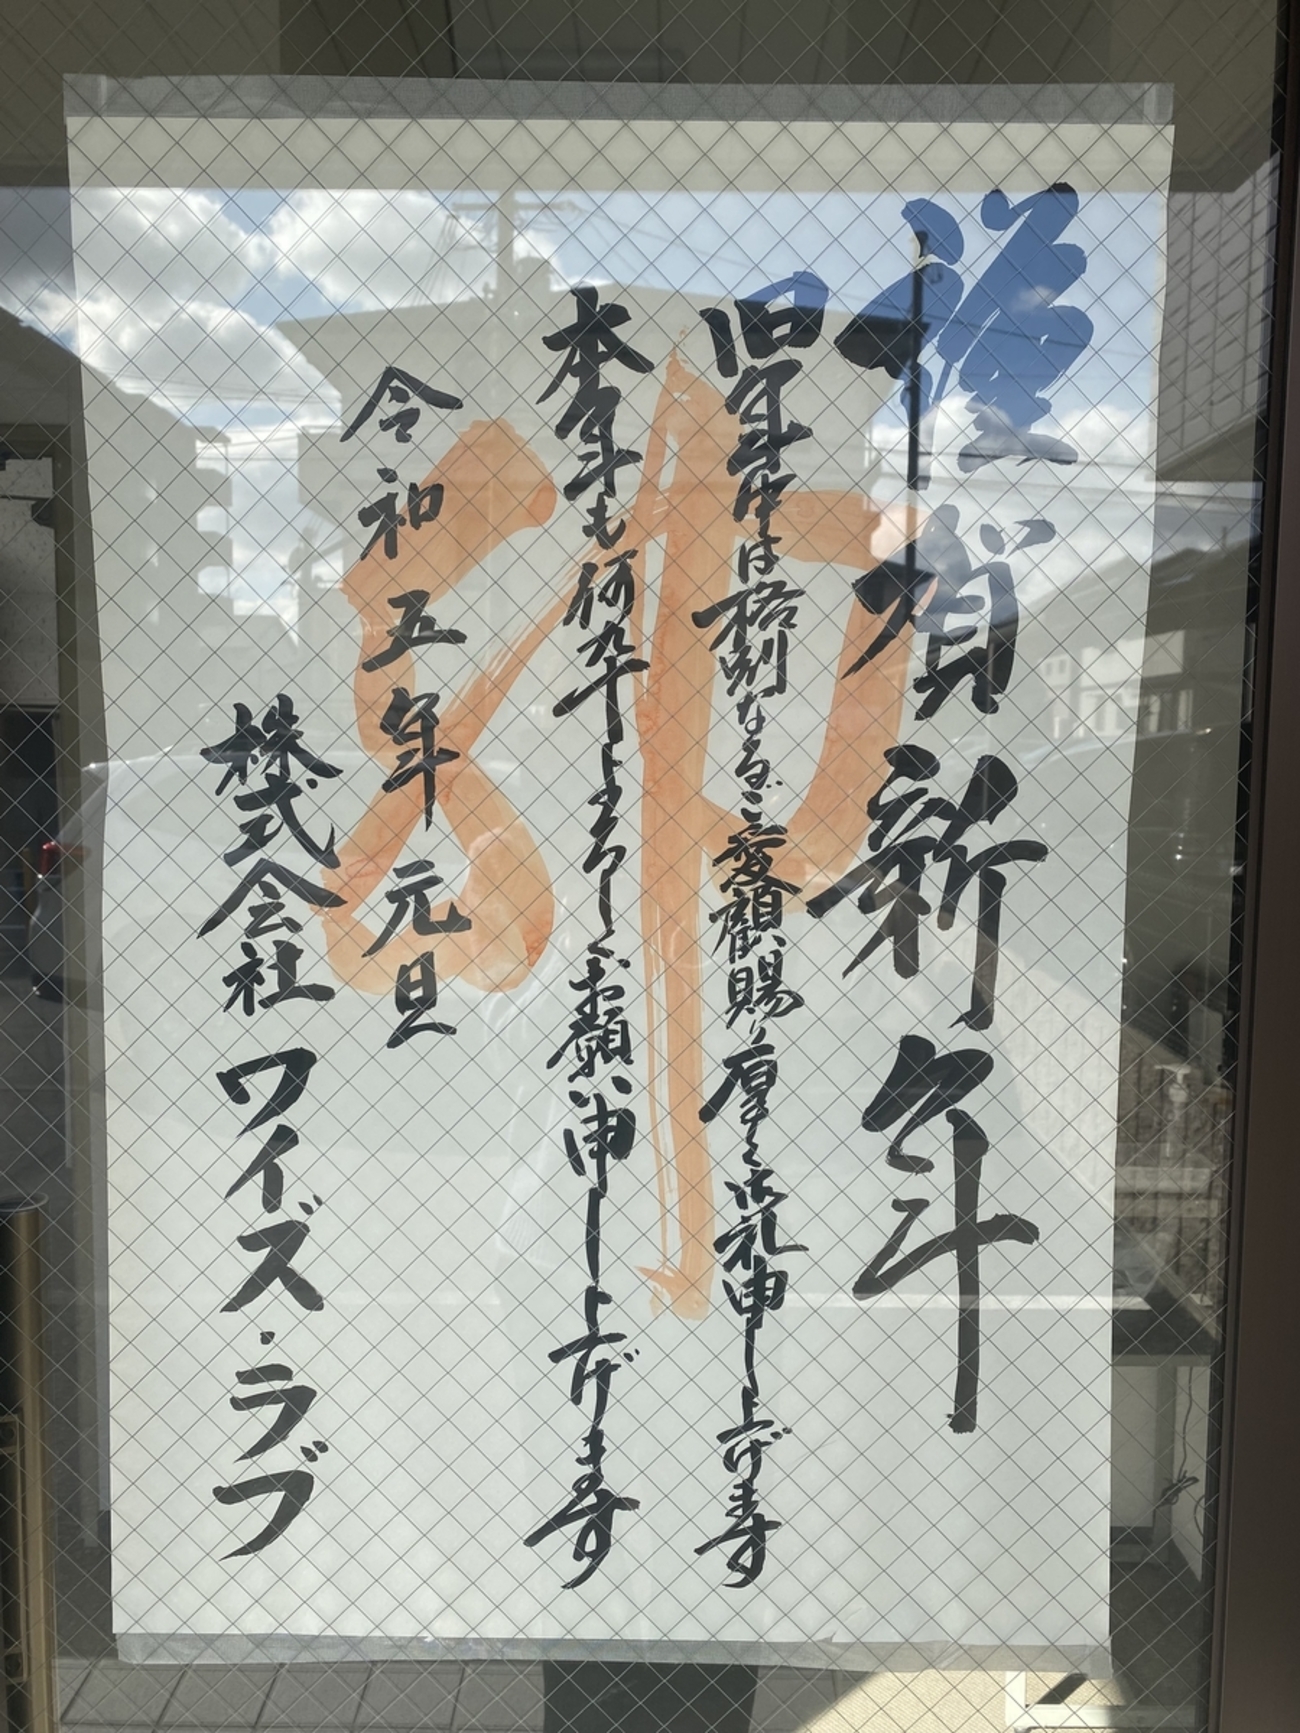 謹賀新年
旧年中は格別なるご愛顧賜り厚く御礼申し上げます
本年も何卒よろしくお願い申し上げます
令和五年元旦
株式会社ワイズ・ラブ
卯